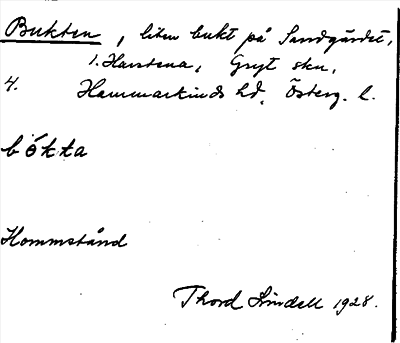 Bukten, liten bukt på Sandgärdet,
1. Harstena, Gryt skn,
4. Hammarkinds hd, Österg. l.
bókta
Hommstånd
Thord Lindell 1928.